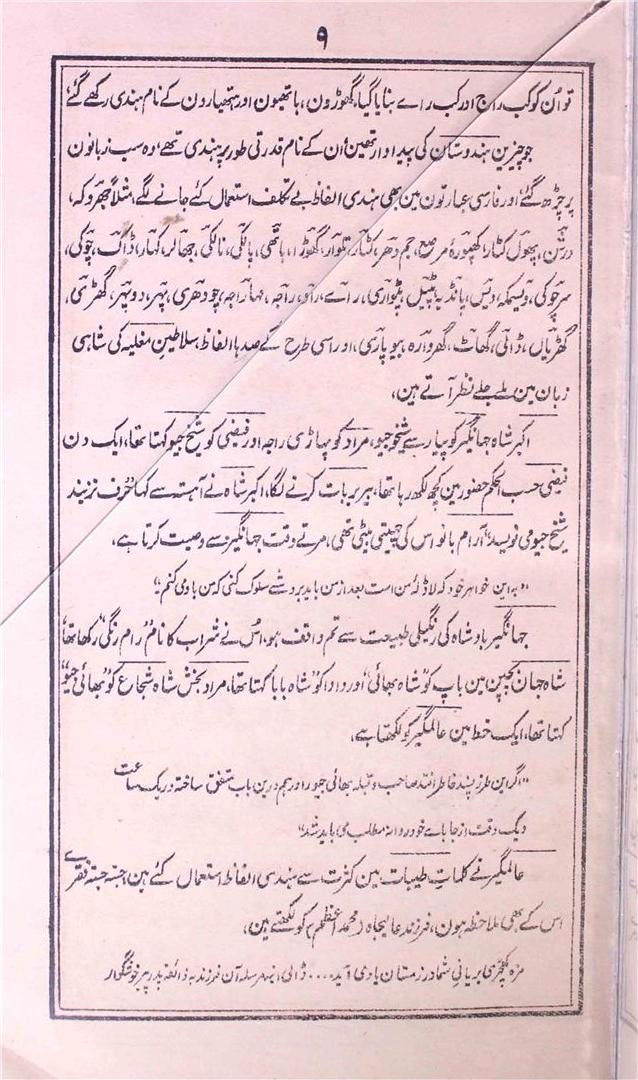 ۹
تو اُن کو کب راج اور کب رائے بنایا گیا، گھوڑون، ہاتھیون اور ہتھیارون کے نام ہندی رکھے گئے
جو چیزین ہندوستان کی پیداوار تھین اُن کے نام قدرتی طور پر ہندی تھے، وہ سب زبانون
پر چڑھ گئے، اور فارسی عبارتون مین بھی ہندی الفاظ بے تکلف استعمال کئے جانے لگے، مثلاً جھروکہ،
درشن، پھول کٹار، کھپورہ مرصع، جم دھر، کٹار، تلوار، گھوڑا، ہاتھی، پالکی، نالکی، جھالر، کہار، ڈاک، چوکی،
سر چوکی، دیسمکھ، دیس، پانڈیہ، پٹیل، پٹواری، رائے، راؤ، راجہ، مہاراجہ، چودھری، پہر، دوپہر، گھڑی،
گھڑیال، ڈالی، گھاٹ، گھروارہ، بیوپاری، اور اسی طرح کے صدہا الفاظ سلاطین مغلیہ کی شاہی
زبان مین ملے جلے نظر آتے ہین،
اکبر شاہ جہانگیر کو پیار سے شیخو جیو، مراد کو پہاڑی راجہ اور فیضی کو شیخ جیو کہتا تھا، ایک دن
فیضی حسب الحکم حضور مین کچھ لکھ رہا تھا، بیربر بات کرنے لگا، اکبر شاہ نے آہستہ سے کہا "حرف نزنید
شیخ جیو می نویسد" آرام بانو اس کی چہیتی بیٹی تھی، مرتے وقت جہانگیر سے وصیت کرتا ہے،
"بہ این خواہر خود کہ لاڈلۂ من است بعد از من باید بروشے سلوک کنی کہ من باو می کنم"
جہانگیر بادشاہ کی رنگیلی طبیعت سے تم واقف ہو، اُس نے شراب کا نام "رام رنگی" رکھا تھا
شاہ جہان بچپن مین باپ کو "شاہ بھائی" اور دادا کو "شاہ بابا" کہتا تھا، مراد بخش شاہ شجاع کو "بھائی جیو"
کہتا تھا، ایک خط مین عالمگیر کو لکھتا ہے،
"اگر این طرز پسند خاطر افتد صاحب و قبلہ بھائی جیو را ہم درین باب متفق ساختہ در یک ساعت
و یک وقت از جاہائے خود روانہ مطلب می باید شد"
عالمگیر نے کلماتِ طیبات مین کثرت سے ہندی الفاظ استعمال کئے ہین، جستہ جستہ فقرے
اس کے بھی ملاحظہ ہون، فرزند عالیجاہ (محمد اعظم) کو لکھتے ہین،
مزہ کھچڑی بریانیِ شما در زمستان یاد می آید .... ڈالی انبہ مرسلہ آن فرزند بہ ذائقہ پدر پیر خوشگوار